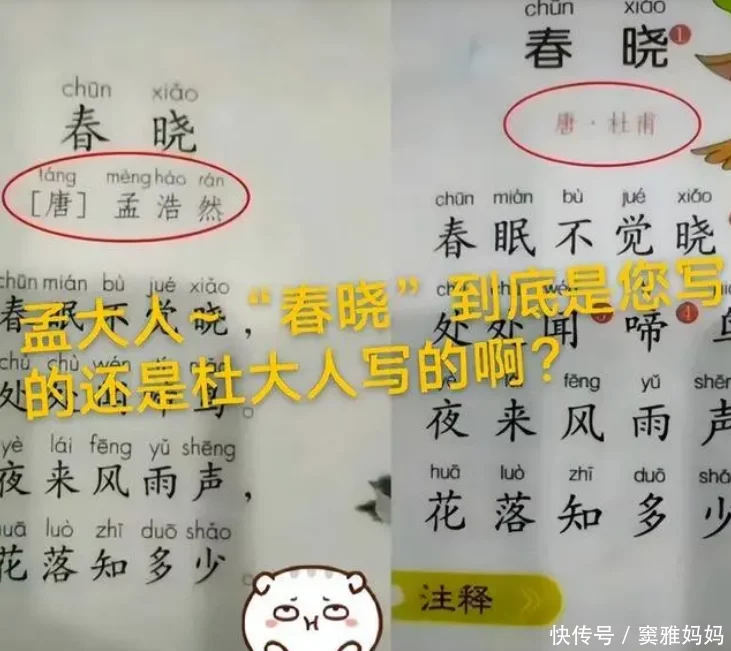 chūn xiǎo
春 晓
táng mèng hào rán
[唐] 孟 浩 然
chūn mián bù jué xiǎo
春 眠 不 觉 晓，
chù chù wén
处 处
yè lái fēng yǔ shēng
夜 来 风 雨 声，
huā luò zhī duō shǎo
花 落 知 多 少。
chūn xiǎo
春 晓 1
唐·杜甫
chūn mián bù jué xiǎo
春 眠 不 觉 晓
处 处 闻 啼 4 鸟
fēng yǔ shēng
夜 来 风 雨 声
huā luò zhī duō shǎ
花 落 知 多 少
注释
孟大人~“春晓”到底是您写
的还是杜大人写的啊？
快传号 / 窦雅妈妈